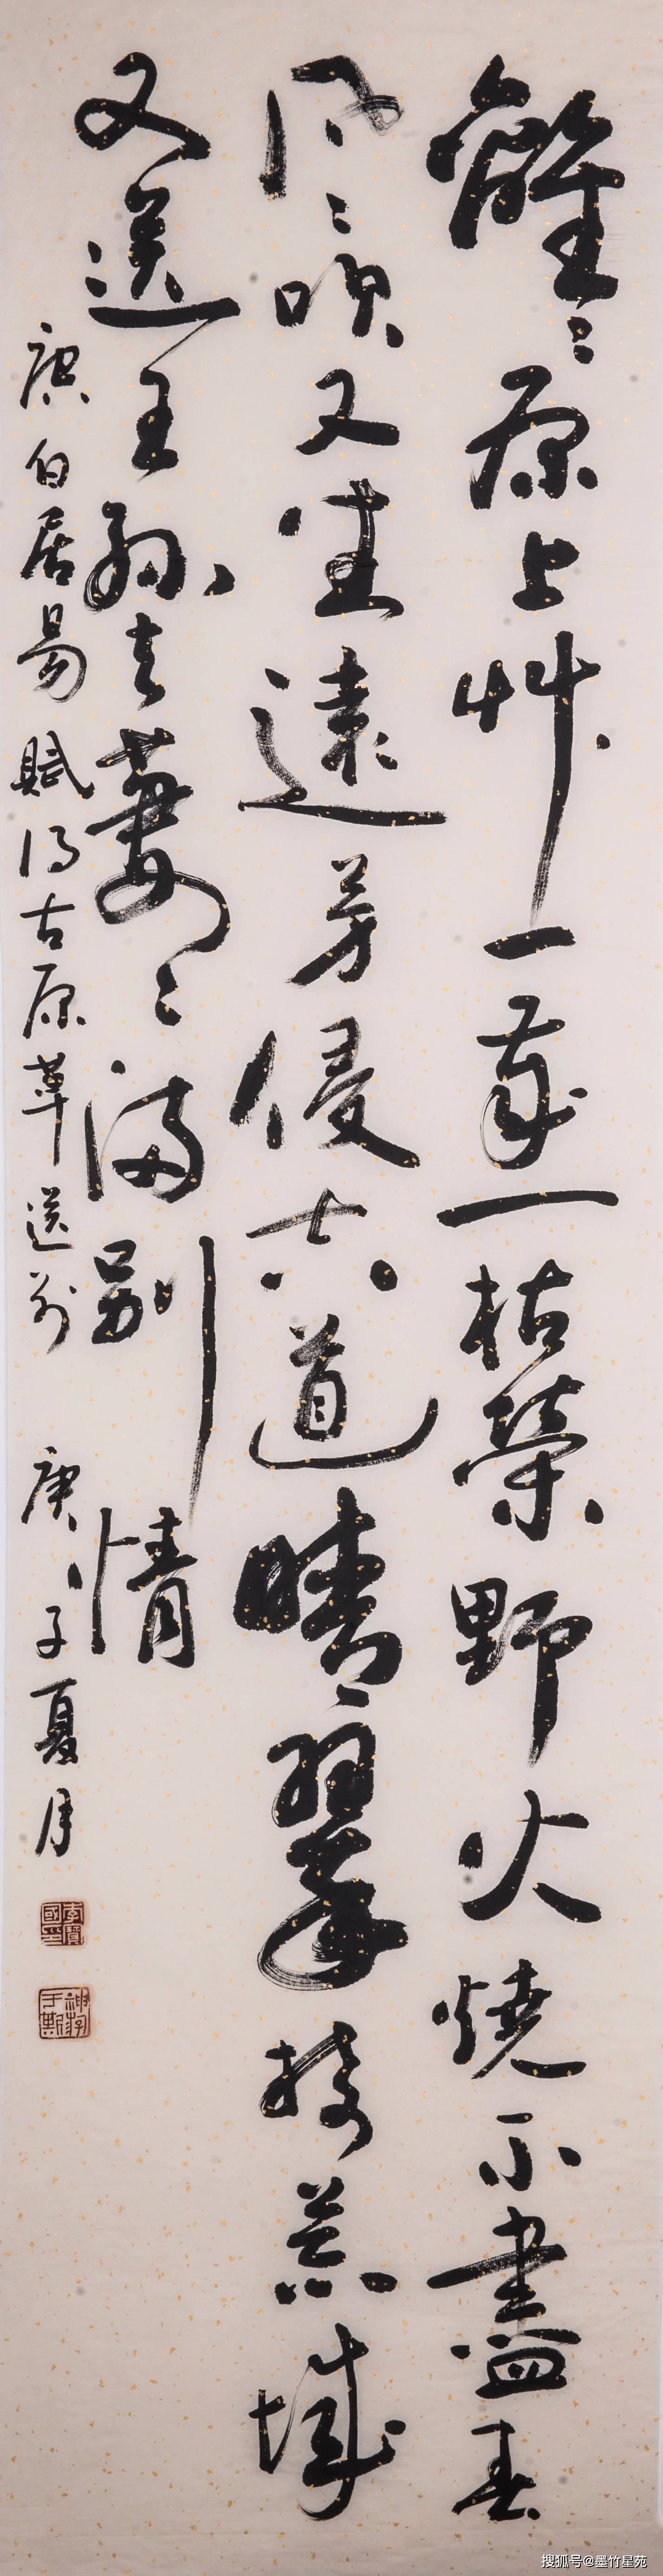 離〻原上艸一歲一枯榮野火燒不盡春
风吹又生遠芳侵古道晴翠接荒城
又送王孫去萋〻滿別情
唐白居易賦得古原草送别 庚子夏月
李賢國印
搜狐号@墨竹星苑